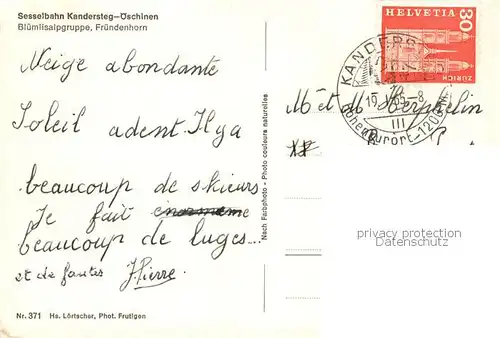 Sesselbahn Kandersteg—Öschinen
Blümlisalpgruppe, Fründenhorn
HELVETIA
30
ZÜRICH
KANDERS
19.
-8
III
Höhenkurort-1200m
Neige abondante
Soleil adent. Il y a
beaucoup de skieurs
Je fait enormeme
beaucoup de luges...
et de fautes J. Pierre.
M et Mᵉ
Nach Farbphoto - Photo couleurs naturelles
privacy protection
Datenschutz
Nr. 371 Hs. Lörtscher, Phot. Frutigen